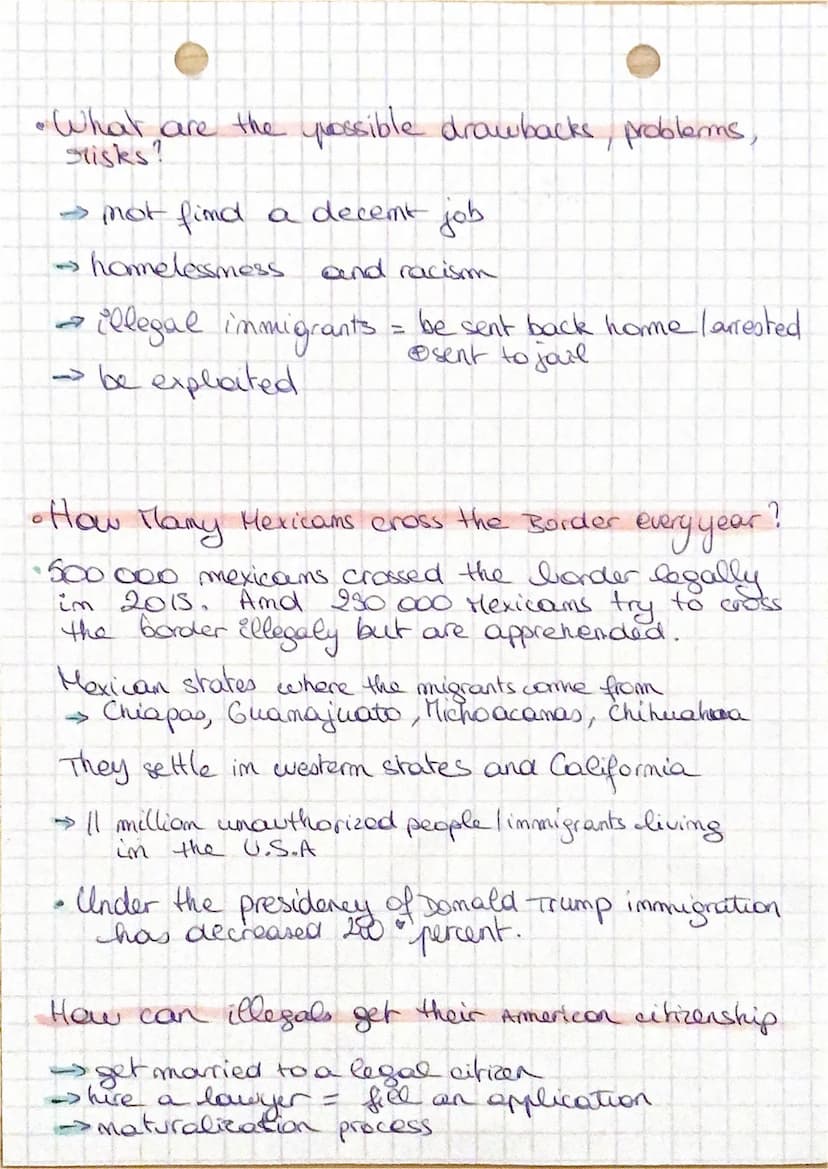 • What are the possible drawbacks, problems,
risks?
→ not find a decent job
→ homelessness and racism
→ illegal immigrants = be sent back home / arrested
⊕ sent to jail
→ be exploited
• How Many Mexicans cross the Border every year?
• 500 000 mexicans crossed the border legally
in 2015. And 230 000 Mexicans try to cross
the border illegaly but are apprehended.
Mexican states where the migrants come from
→ Chiapas, Guanajuato, Michoacanas, Chihuahua
They settle in western states and California
→ 11 million unauthorized people / immigrants living
in the U.S.A
• Under the presidency of Donald Trump immigration
has decreased percent.
How can illegals get their American citizenship
→ get married to a legal citizen
→ hire a lawyer = fill an application
→ naturalization process